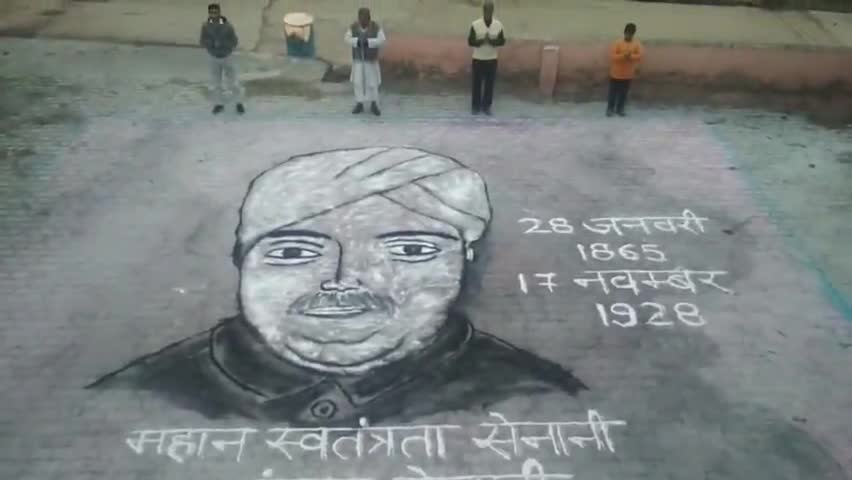 28 जनवरी
1865
17 नवम्बर
1928
महान स्वतंत्रता सेनानी